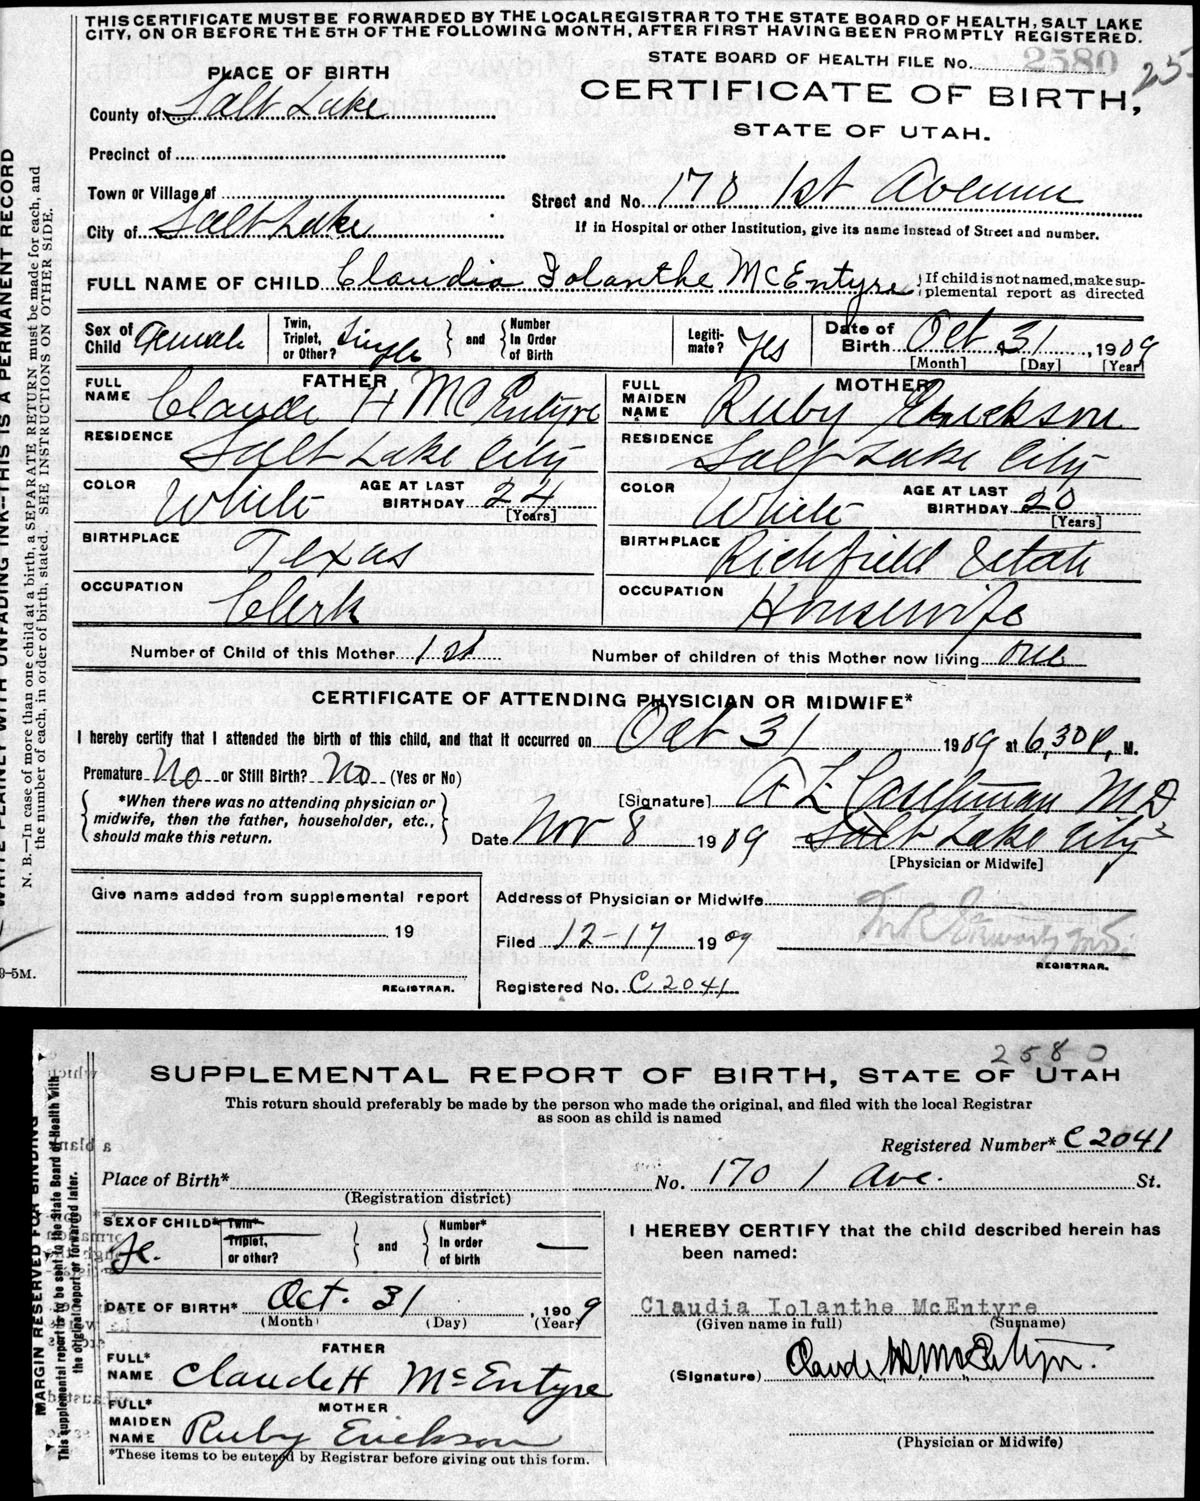 THIS CERTIFICATE MUST BE FORWARDED BY THE LOCAL REGISTRAR TO THE STATE BOARD OF HEALTH, SALT LAKE
CITY, ON OR BEFORE THE 5TH OF THE FOLLOWING MONTH, AFTER FIRST HAVING BEEN PROMPTLY REGISTERED.
STATE BOARD OF HEALTH FILE No. 2580
PLACE OF BIRTH
CERTIFICATE OF BIRTH,
STATE OF UTAH.
County of Salt Lake
Precinct of
Town or Village of
Street and No. 170 1st Avenue
City of Salt Lake
If in Hospital or other Institution, give its name instead of Street and number.
FULL NAME OF CHILD Claudia Iolanthe McEntyre { If child is not named, make sup-
plemental report as directed
Sex of Child Female
Twin, Triplet, or Other? Single } and { Number In Order of Birth
Legiti-mate? Yes
Date of Birth Oct 31, 1909
[Month] [Day] [Year]
FATHER
FULL NAME Claude H McEntyre
RESIDENCE Salt Lake City
COLOR White AGE AT LAST BIRTHDAY 24
[Years]
BIRTHPLACE Texas
OCCUPATION Clerk
MOTHER
FULL MAIDEN NAME Ruby Erickson
RESIDENCE Salt Lake City
COLOR White AGE AT LAST BIRTHDAY 20
[Years]
BIRTHPLACE Richfield Utah
OCCUPATION Housewife
Number of Child of this Mother 1st Number of children of this Mother now living one
CERTIFICATE OF ATTENDING PHYSICIAN OR MIDWIFE*
I hereby certify that I attended the birth of this child, and that it occurred on Oct 31 1909 at 6,30 P, M.
Premature No or Still Birth? No (Yes or No)
{ *When there was no attending physician or
midwife, then the father, householder, etc.,
should make this return. }
[Signature] M D
Date Nov 8 1909 Salt Lake City
[Physician or Midwife]
Give name added from supplemental report
19
REGISTRAR.
Address of Physician or Midwife
Filed 12-17 1909
REGISTRAR.
Registered No. C 2041
WRITE PLAINLY WITH UNFADING INK--THIS IS A PERMANENT RECORD
N. B.--In case of more than one child at a birth, a SEPARATE RETURN must be made for each, and
the number of each, in order of birth, stated. SEE INSTRUCTIONS ON OTHER SIDE.
9-5M.
2580
SUPPLEMENTAL REPORT OF BIRTH, STATE OF UTAH
This return should preferably be made by the person who made the original, and filed with the local Registrar
as soon as child is named
Registered Number* C 2041
Place of Birth* No. 170 1 Ave. St.
(Registration district)
SEX OF CHILD* Fe.
Twin* Triplet, or other? } and { Number* In order of birth —
DATE OF BIRTH* Oct. 31, 1909
(Month) (Day) (Year)
FATHER
FULL* NAME Claude H McEntyre
MOTHER
FULL* MAIDEN NAME Ruby Erickson
*These items to be entered by Registrar before giving out this form.
I HEREBY CERTIFY that the child described herein has
been named:
Claudia Iolanthe McEntyre
(Given name in full) (Surname)
(Signature) Claude H. McEntyre.
(Physician or Midwife)
MARGIN RESERVED FOR BINDING
This supplemental report to be sent to the State Board of Health with
the original report or forwarded later.